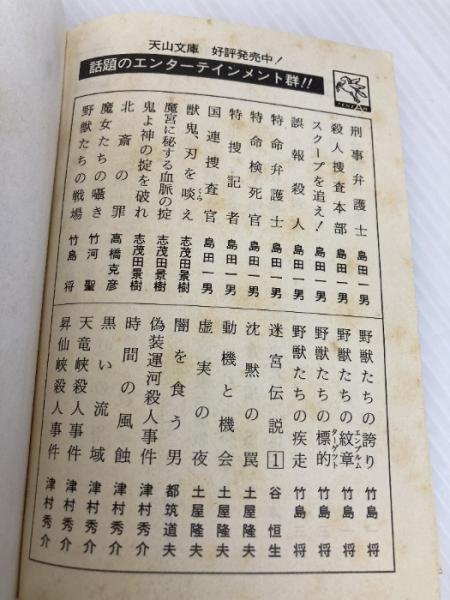 天山文庫 好評発売中！
話題のエンターテインメント群!!
TENZAN
刑事弁護士 島田一男
殺人捜査本部 島田一男
スクープを追え！ 島田一男
誤報殺人 島田一男
特命弁護士 島田一男
特命検死官 島田一男
特捜記者 島田一男
国連捜査官 島田一男
獣鬼、刃を啖え 志茂田景樹
くら
魔宮に秘する血脈の掟 志茂田景樹
鬼よ神の掟を破れ 志茂田景樹
北斎の罪 高橋克彦
魔女たちの囁き 竹河聖
野獣たちの戦場 竹島将
野獣たちの誇り 竹島将
野獣たちの紋章 竹島将
エンブレム
野獣たちの標的 竹島将
ターゲット
野獣たちの疾走 竹島将
迷宮伝説 1 谷恒生
沈黙の罠 土屋隆夫
動機と機会 土屋隆夫
虚実の夜 土屋隆夫
闇を食う男 都筑道夫
偽装運河殺人事件 津村秀介
時間の風蝕 津村秀介
黒い流域 津村秀介
天竜峡殺人事件 津村秀介
昇仙峡殺人事件 津村秀介